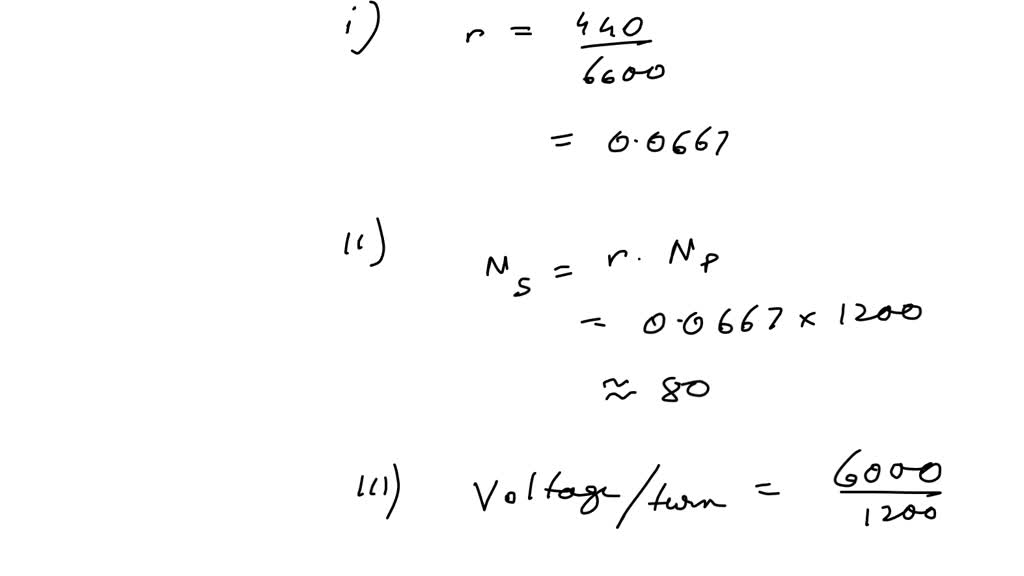 i) r = 440/6600
= 0.0667
ii) N_S = r. N_P
= 0.0667 × 1200
≈ 80
iii) Voltage/turn = 6000/1200